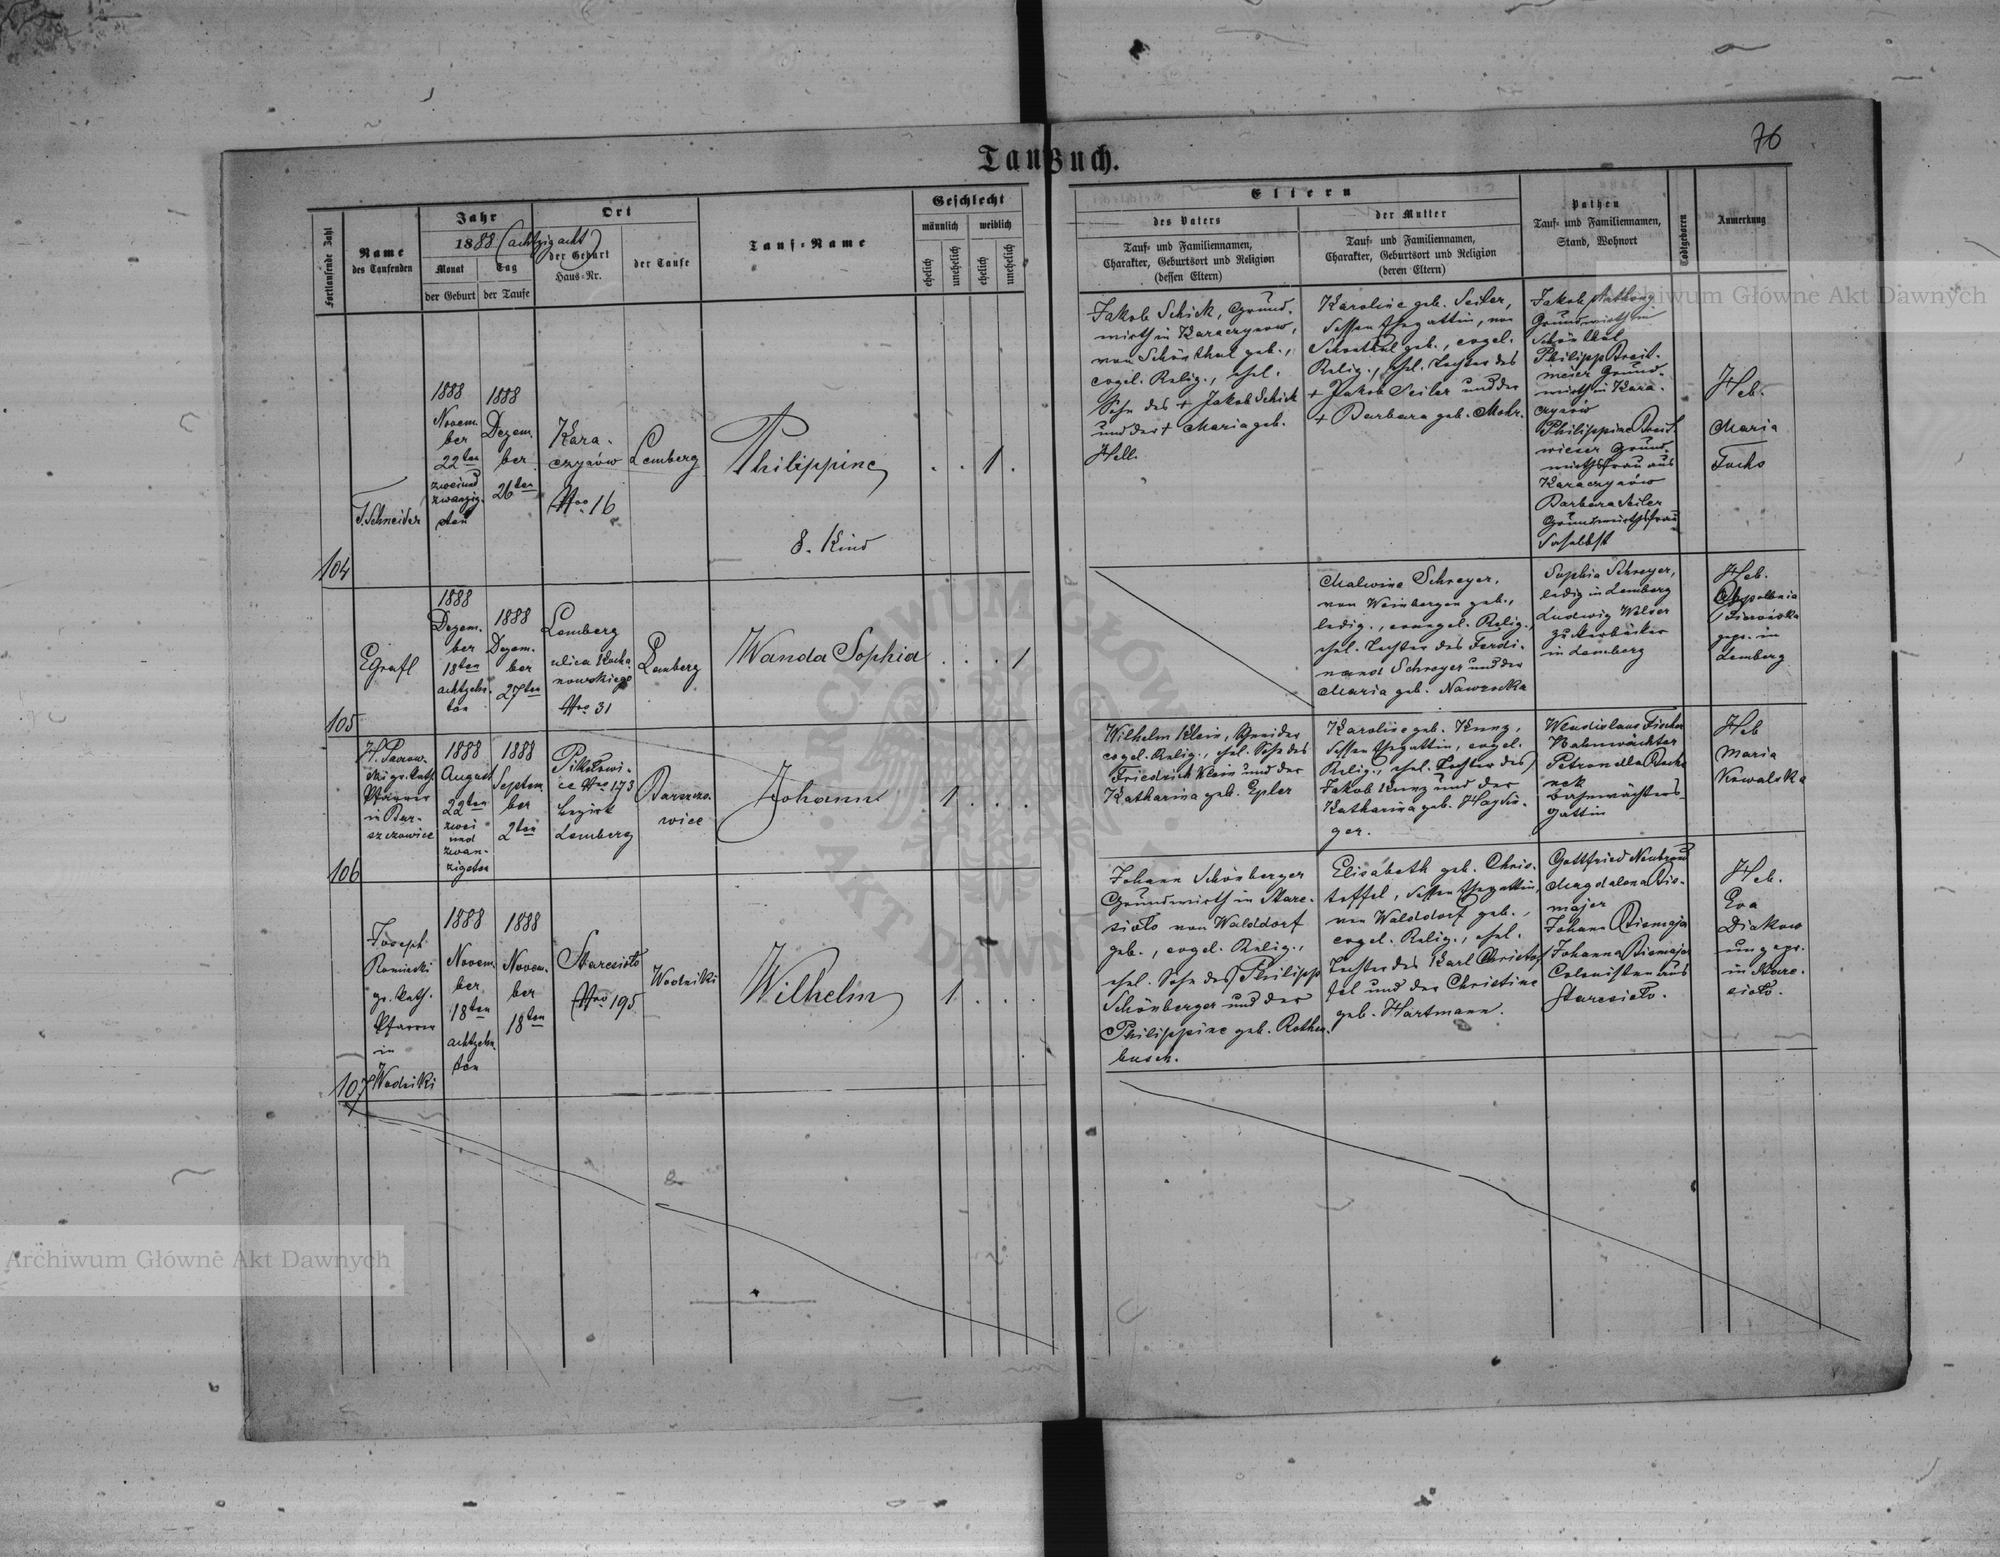 76
Taufbuch.
Fortlaufende Zahl
Name
des Taufenden
Jahr
1888 (achtzig acht)
Monat
Tag
der Geburt
der Taufe
Ort
der Geburt
Haus-Nr.
der Taufe
Tauf-Name
Geschlecht
männlich
weiblich
ehelich
unehelich
ehelich
unehelich
Eltern
des Vaters
Tauf- und Familiennamen,
Charakter, Geburtsort und Religion
(dessen Eltern)
der Mutter
Tauf- und Familiennamen,
Charakter, Geburtsort und Religion
(deren Eltern)
Pathen
Tauf- und Familiennamen,
Stand, Wohnort
Todtgeboren
Anmerkung
104
J. Schneider
1888
Novem-
ber
22ten
zweiund
zwanzig-
sten
1888
Dezem-
ber
26ten
Kara-
czynów
Nro 16
Lemberg
Philippine
8. Kind
. . 1 .
Jakob Schick, Grund-
wirth in Karaczynow,
von Schönthal geb.,
evgel. Relig., ehel.
Sohn des + Jakob Schick
und der + Maria geb.
Hell.
Karoline geb. Seiler,
dessen Ehegattin, von
Schönthal geb., evgel.
Relig., ehel. Tochter des
+ Jakob Seiler und der
+ Barbara geb. Mohr.
Jakob
Grundwirth in
Schönthal
Philipp Breit-
meier Grund-
wirth in Kara-
czynów
Philippine Breit-
meier Grund-
wirthsfrau aus
Karaczynów
Barbara Seiler
Grundwirthsfrau
daselbst
Heb.
Maria
Fuchs
105
E Grafl
1888
Dezem-
ber
18ten
achtzehn-
ten
1888
Dezem-
ber
27ten
Lemberg
ulica Kocha-
nowskiego
Nro 31
Lemberg
Wanda Sophia
. . . 1
Malwine Schreyer,
von Weinbergen geb.,
ledig., evangel. Relig.,
ehel. Tochter des Ferdi-
nand Schreyer und der
Maria geb. Nawrocka
Sophia Schreyer,
ledig in Lemberg
Ludwig Welser
Zuckerbäcker
in Lemberg
Heb.
Appolonia
gepr. in
Lemberg
106
H.
gr. kath.
Pfarrer
in Bar-
szczowice
1888
August
22ten
zwei
und
zwan-
zigsten
1888
Septem-
ber
2ten
Pikułowi-
ce Nro 173
bezirk
Lemberg
Barszczo-
wice
Johann
1 . . .
Wilhelm Klein, Schneider
evgel. Relig., ehel. Sohn des
Friedrich Klein und der
Katharina geb. Epler
Karoline geb. Kunz,
dessen Ehegattin, evgel.
Relig., ehel. Tochter des
Jakob Kunz und der
Katharina geb.
ger.
Wendislaus Fischer
Bahnwächter
Petronella
Bahnwächters-
gattin
Heb
Maria
Kowalska
107
Joseph
Kominski
gr. kath.
Pfarrer
in
Wodniki
1888
Novem-
ber
18ten
achtzehn-
ten
1888
Novem-
ber
18ten
Staresioło
Nro 195
Wodniki
Wilhelm
1 . . .
Johann Schönberger
Grundwirth in Stare-
sioło von Walddorf
geb., evgel. Relig.,
ehel. Sohn des Philipp
Schönberger und der
Philippine geb. Rothen-
busch.
Elisabeth geb. Chris-
toffel, dessen Ehegattin,
von Walddorf geb.,
evgel. Relig., ehel.
Tochter des Karl Christof-
fel und der Christine
geb. Hartmann.
Gottfried Neubrand
Magdalena Bis-
majer
Johann Biemajer
Johanna Biemajer
Colonisten aus
Staresioło.
Heb.
Eva
Diakow
ungepr.
in Stare-
sioło.
Archiwum Główne Akt Dawnych
Archiwum Główne Akt Dawnych
ARCHIWUM GŁÓWNE AKT DAWNYCH